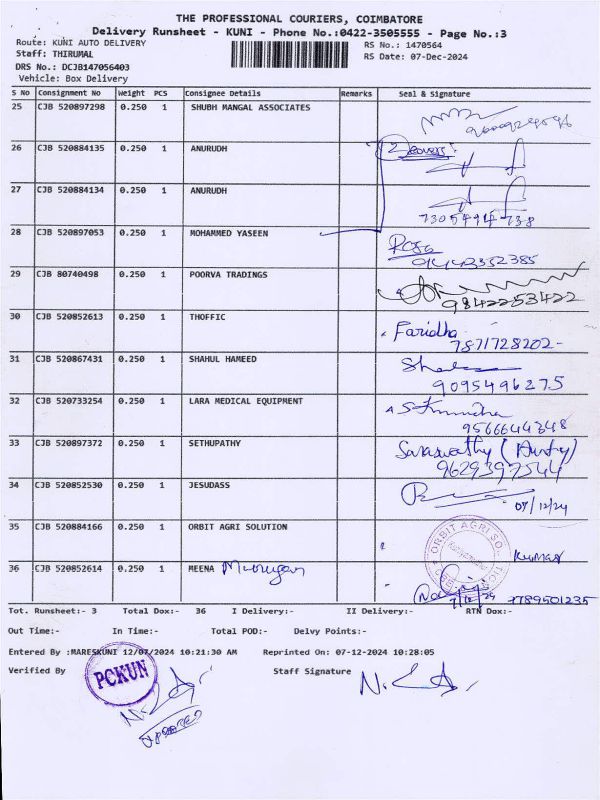 THE PROFESSIONAL COURIERS, COIMBATORE
Delivery Runsheet - KUNI - Phone No.:0422-3505555 - Page No.:3
Route: KUNI AUTO DELIVERY
RS No.: 1470564
Staff: THIRUMAL
RS Date: 07-Dec-2024
DRS No.: DCJB147056403
Vehicle: Box Delivery
S No Consignment No Weight PCS Consignee Details Remarks Seal & Signature
25 CJB 520897298 0.250 1 SHUBH MANGAL ASSOCIATES
26 CJB 520884135 0.250 1 ANURUDH
27 CJB 520884134 0.250 1 ANURUDH
7305494738
28 CJB 520897053 0.250 1 MOHAMMED YASEEN
29 CJB 80740498 0.250 1 POORVA TRADINGS
9842253422
30 CJB 520852613 0.250 1 THOFFIC Faridha
7871728202-
31 CJB 520867431 0.250 1 SHAHUL HAMEED
9095496275
32 CJB 520733254 0.250 1 LARA MEDICAL EQUIPMENT
9566644348
33 CJB 520897372 0.250 1 SETHUPATHY Saraswathy
9629397544
34 CJB 520852530 0.250 1 JESUDASS
07/12/24
35 CJB 520884166 0.250 1 ORBIT AGRI SOLUTION ORBIT AGRI SO
Kumar
36 CJB 520852614 0.250 1 MEENA Murugan
7/12/24 7789501235
Tot. Runsheet:- 3 Total Dox:- 36 I Delivery:- II Delivery:- RTN Dox:-
Out Time:- In Time:- Total POD:- Delvy Points:-
Entered By :MARESKUNI 12/07/2024 10:21:30 AM Reprinted On: 07-12-2024 10:28:05
Verified By Staff Signature
PCKUN